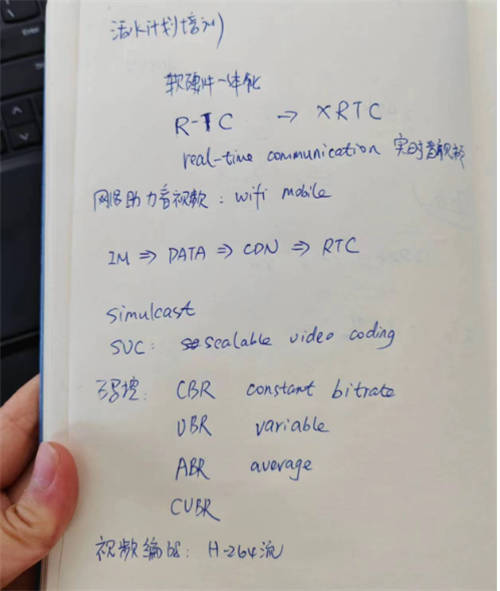 活水计划培训)
软硬件一体化
RTC → XRTC
real-time communication 实时音视频
网络助力音视频: wifi mobile
IM ⇒ DATA ⇒ CDN ⇒ RTC
simulcast
SVC: scalable video coding
码控: CBR constant bitrate
VBR variable
ABR average
CVBR
视频编码: H-264流